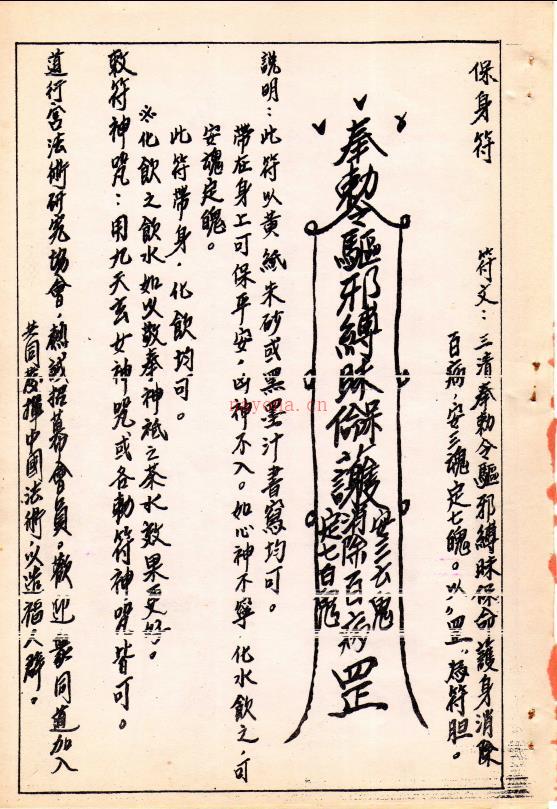 保身符
符文：三清奉勅令驅邪縛眛保命護身消除
百病，安三魂定七魄。以，罡，為符胆。
奉勅令驅邪縛眛保命護
安三魂
消除百病
定七魄
罡
說明：此符以黃紙朱砂或黑墨汁書寫均可。
帶在身上可保平安，凶神不入。如心神不寧，化水飲之，可
安魂定魄。
此符帶身，化飲均可。
※化飲之飲水如以敬奉神祗之茶水效果更好。
敕符神咒：用九天玄女神咒或各勅符神咒皆可。
道行宮法術研究協會，熱誠招募會員，歡迎眾同道加入
共同發揮中國法術，以造福人群。
nayona.cn